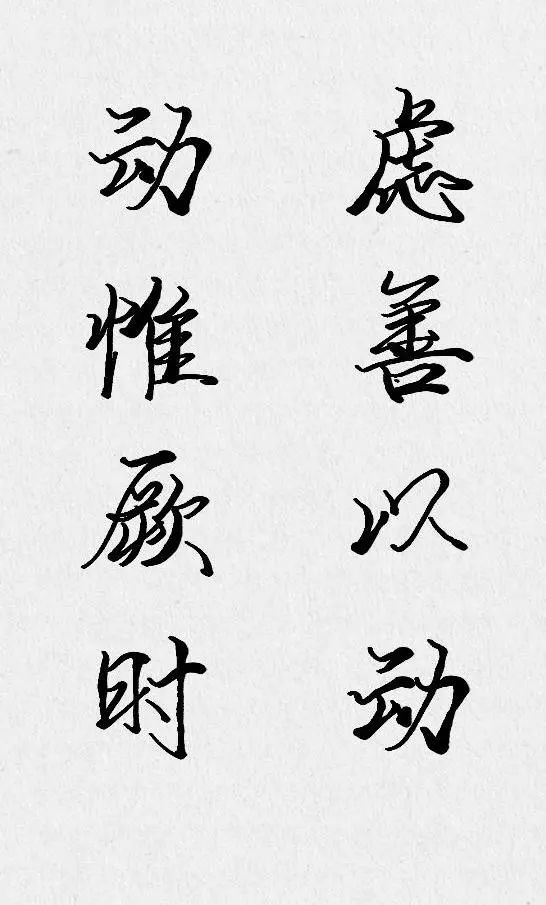 虑善以动
动惟厥时